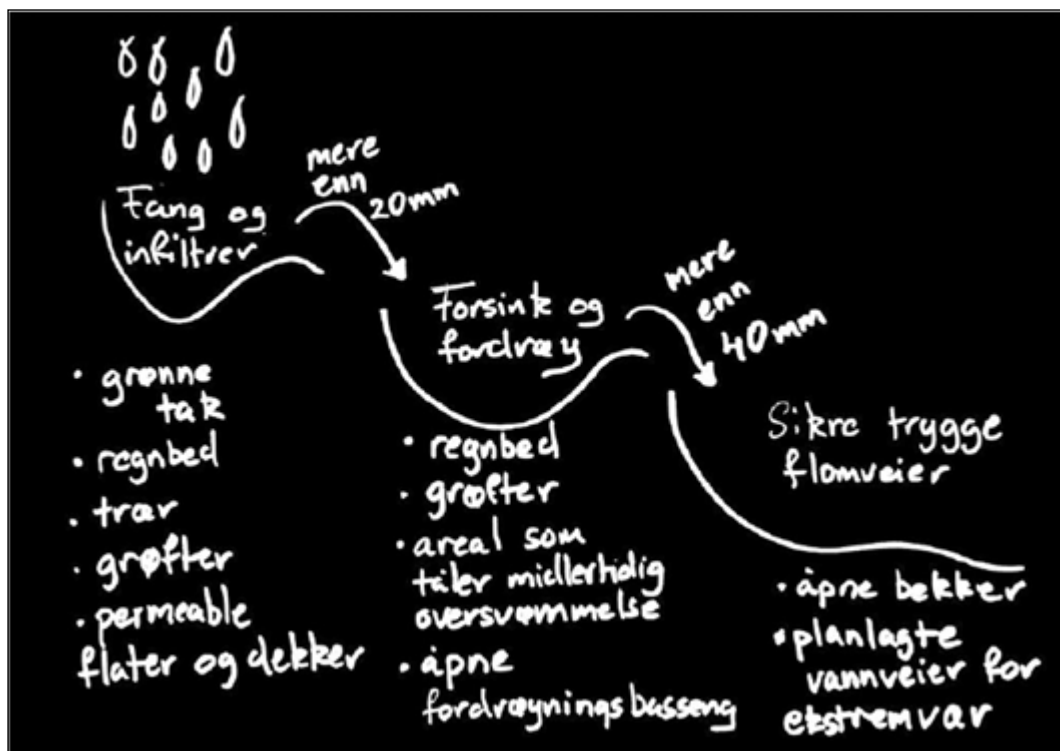 Fang og
infiltrer
mere
enn
20mm
Forsink og
fordrøy
mere
enn
40mm
Sikre trygge
flomveier
• grønne
tak
• regnbed
• trær
• grøfter
• permeable
flater og dekker
• regnbed
• grøfter
• areal som
tåler midlertidig
oversvømmelse
• åpne
fordrøyningsbasseng
• åpne bekker
• planlagte
vannveier for
ekstremvær